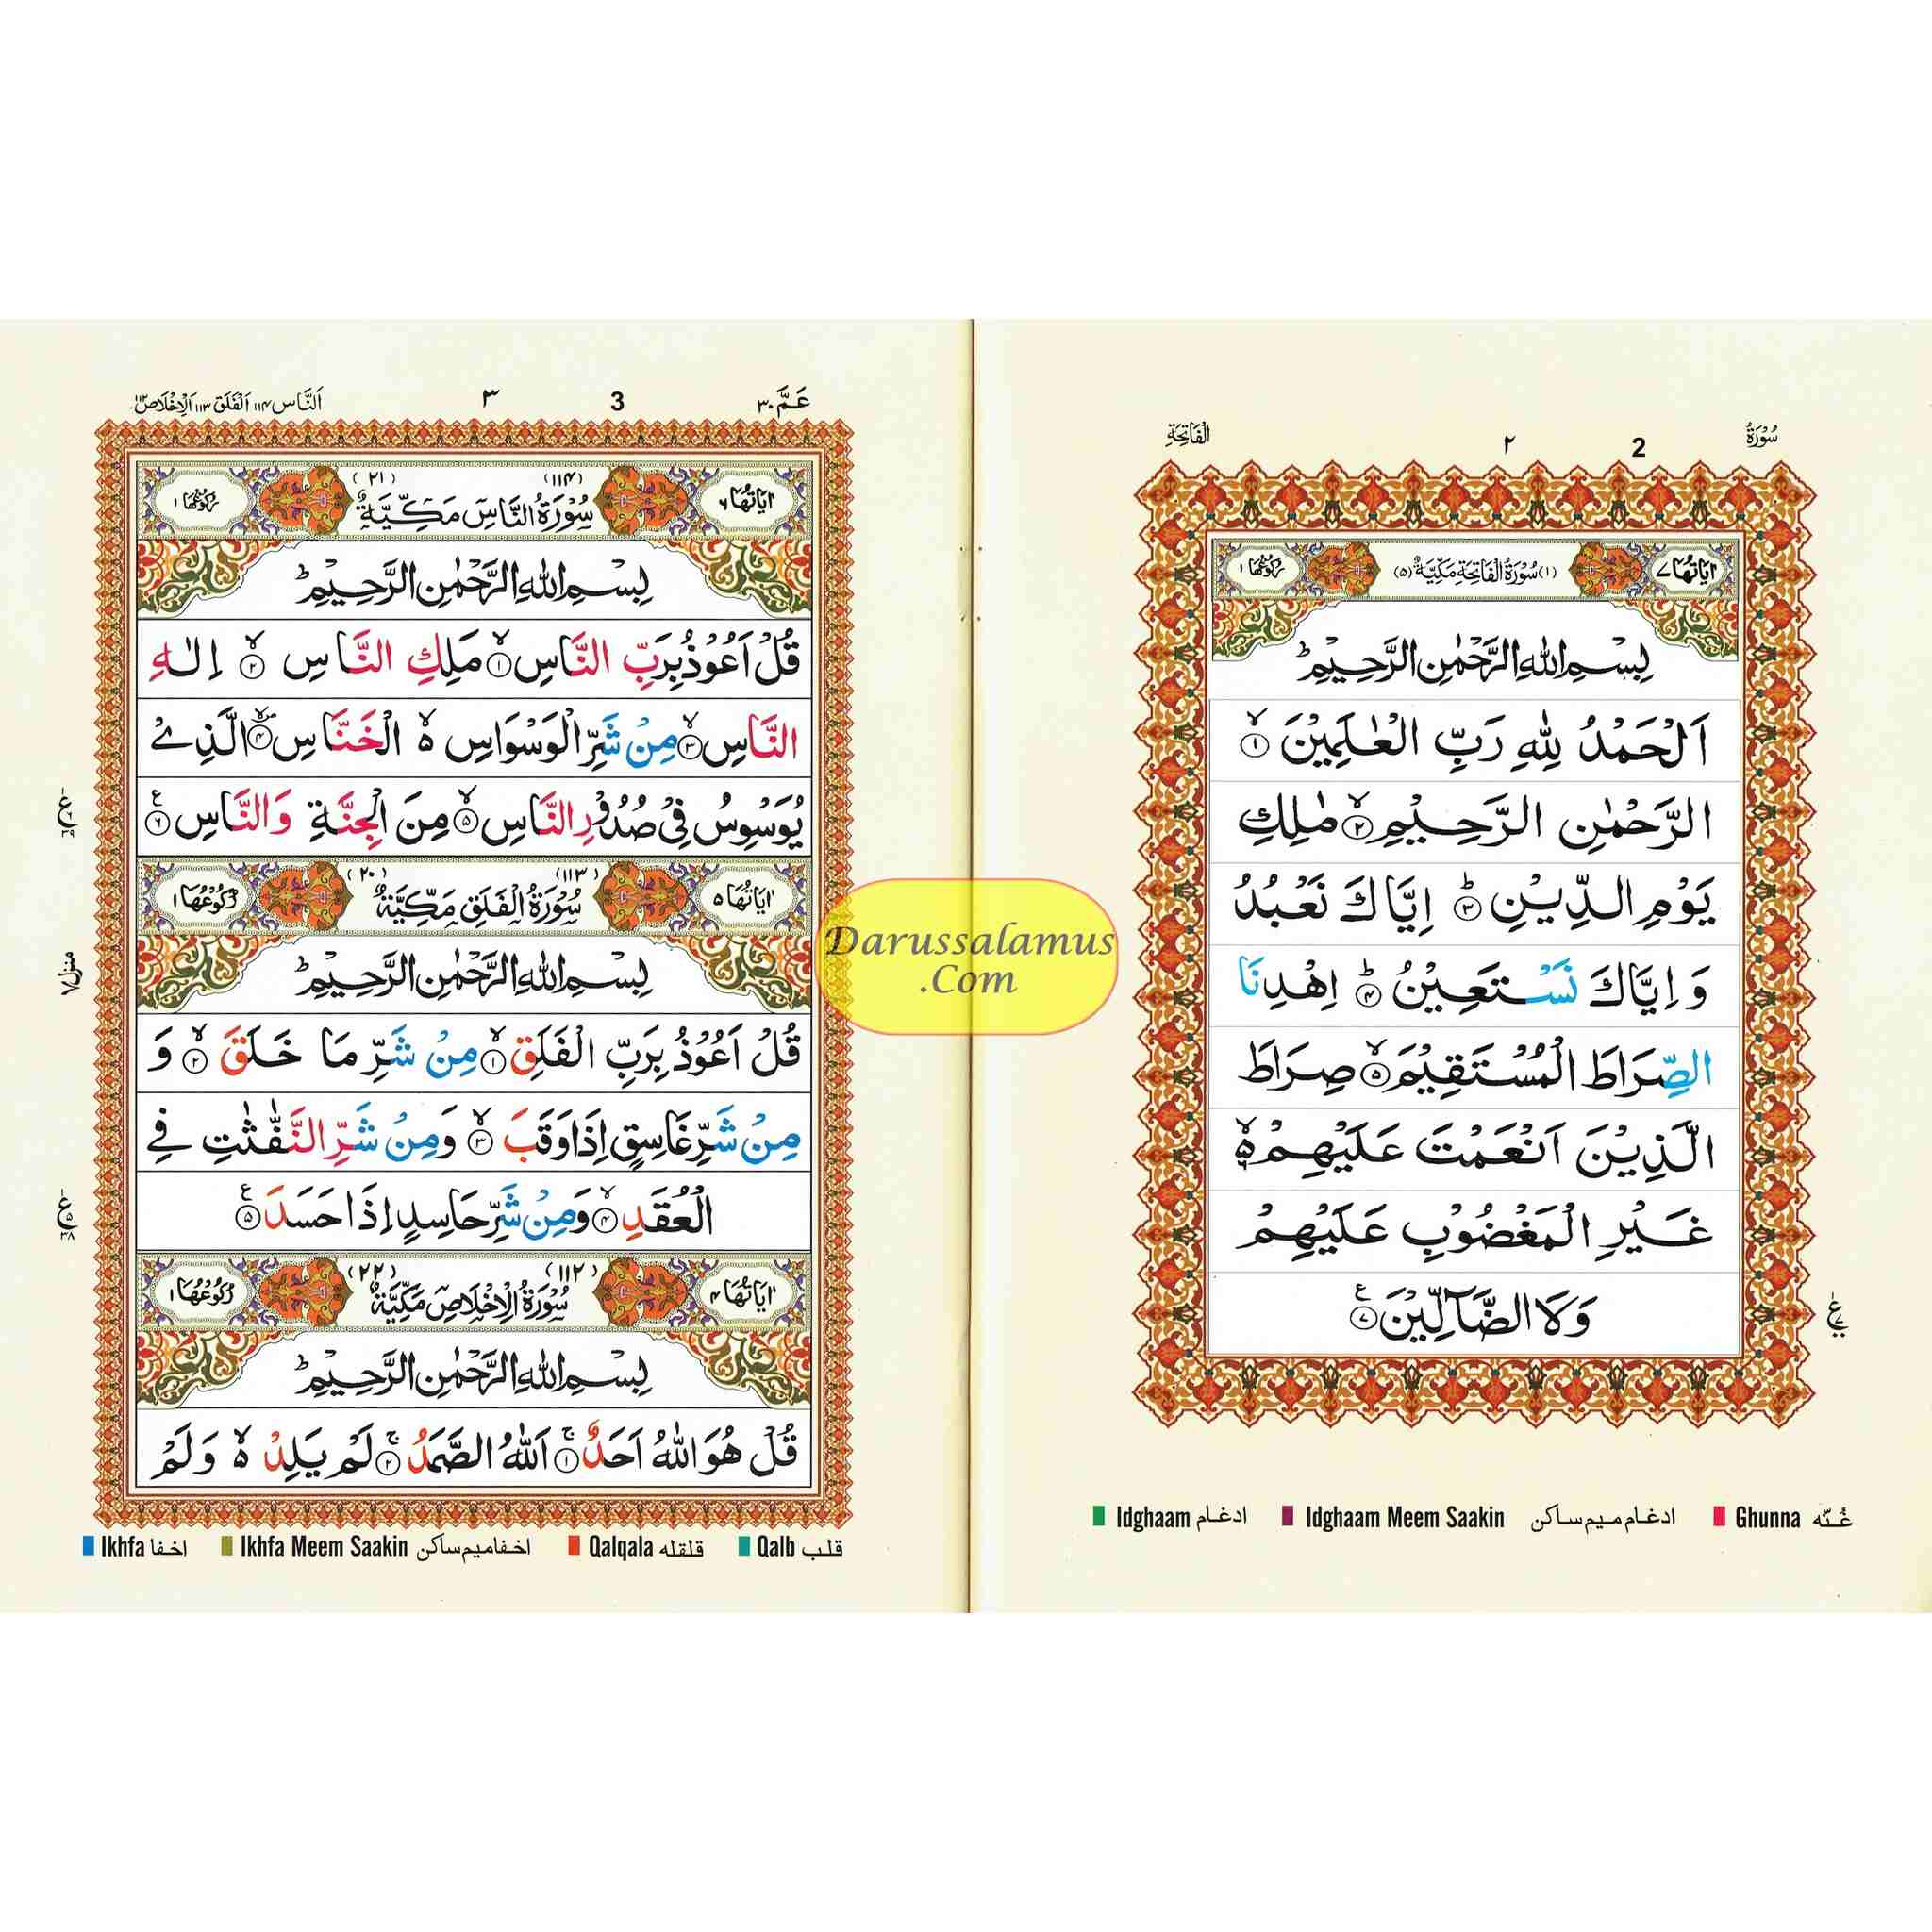 سُوْرَةُ 2 ٢ الْفَاتِحَةِ
اٰيَاتُهَا ٧ (١) سُوْرَةُ الْفَاتِحَةِ مَكِّيَّةٌ (٥) رُكُوْعُهَا ١
بِسْمِ اللّٰهِ الرَّحْمٰنِ الرَّحِيْمِ ؕ
اَلْحَمْدُ لِلّٰهِ رَبِّ الْعٰلَمِيْنَ ۙ ١
الرَّحْمٰنِ الرَّحِيْمِ ۙ ٢ مٰلِكِ
يَوْمِ الدِّيْنِ ؕ ٣ اِيَّاكَ نَعْبُدُ
وَ اِيَّاكَ نَسْتَعِيْنُ ؕ ٤ اِهْدِنَا
الصِّرَاطَ الْمُسْتَقِيْمَ ۙ ٥ صِرَاطَ
الَّذِيْنَ اَنْعَمْتَ عَلَيْهِمْ ۙ
غَيْرِ الْمَغْضُوْبِ عَلَيْهِمْ
وَلَا الضَّآلِّيْنَ ٧
ع
Idghaam ادغام Idghaam Meem Saakin ادغام ميم ساكن Ghunna غُنّه
عَمَّ ٣٠ 3 ٣ اَلنَّاس ١١٤ اَلْفَلَق ١١٣ اَلْاِخْلَاص ١١٢
اٰيَاتُهَا ٦ (١١٤) سُوْرَةُ النَّاسِ مَكِّيَّةٌ (٢١) رُكُوْعُهَا ١
بِسْمِ اللّٰهِ الرَّحْمٰنِ الرَّحِيْمِ ؕ
قُلْ اَعُوْذُ بِرَبِّ النَّاسِ ۙ ١ مَلِكِ النَّاسِ ۙ ٢ اِلٰهِ
النَّاسِ ۙ ٣ مِنْ شَرِّ الْوَسْوَاسِ ۙ الْخَنَّاسِ ٤ الَّذِيْ
يُوَسْوِسُ فِيْ صُدُوْرِ النَّاسِ ۙ ٥ مِنَ الْجِنَّةِ وَالنَّاسِ ٦
اٰيَاتُهَا ٥ (١١٣) سُوْرَةُ الْفَلَقِ مَكِّيَّةٌ (٢٠) رُكُوْعُهَا ١
بِسْمِ اللّٰهِ الرَّحْمٰنِ الرَّحِيْمِ ؕ
قُلْ اَعُوْذُ بِرَبِّ الْفَلَقِ ۙ ١ مِنْ شَرِّ مَا خَلَقَ ۙ ٢ وَ
مِنْ شَرِّ غَاسِقٍ اِذَا وَقَبَ ۙ ٣ وَمِنْ شَرِّ النَّفّٰثٰتِ فِي
الْعُقَدِ ۙ ٤ وَمِنْ شَرِّ حَاسِدٍ اِذَا حَسَدَ ٥
اٰيَاتُهَا ٤ (١١٢) سُوْرَةُ الْاِخْلَاصِ مَكِّيَّةٌ (٢٢) رُكُوْعُهَا ١
بِسْمِ اللّٰهِ الرَّحْمٰنِ الرَّحِيْمِ ؕ
قُلْ هُوَ اللّٰهُ اَحَدٌ ۚ ١ اَللّٰهُ الصَّمَدُ ۚ ٢ لَمْ يَلِدْ ۙ وَلَمْ
منزل ٧
Ikhfa اخفا Ikhfa Meem Saakin اخفا ميم ساكن Qalqala قلقله Qalb قلب
Darussalamus
.Com